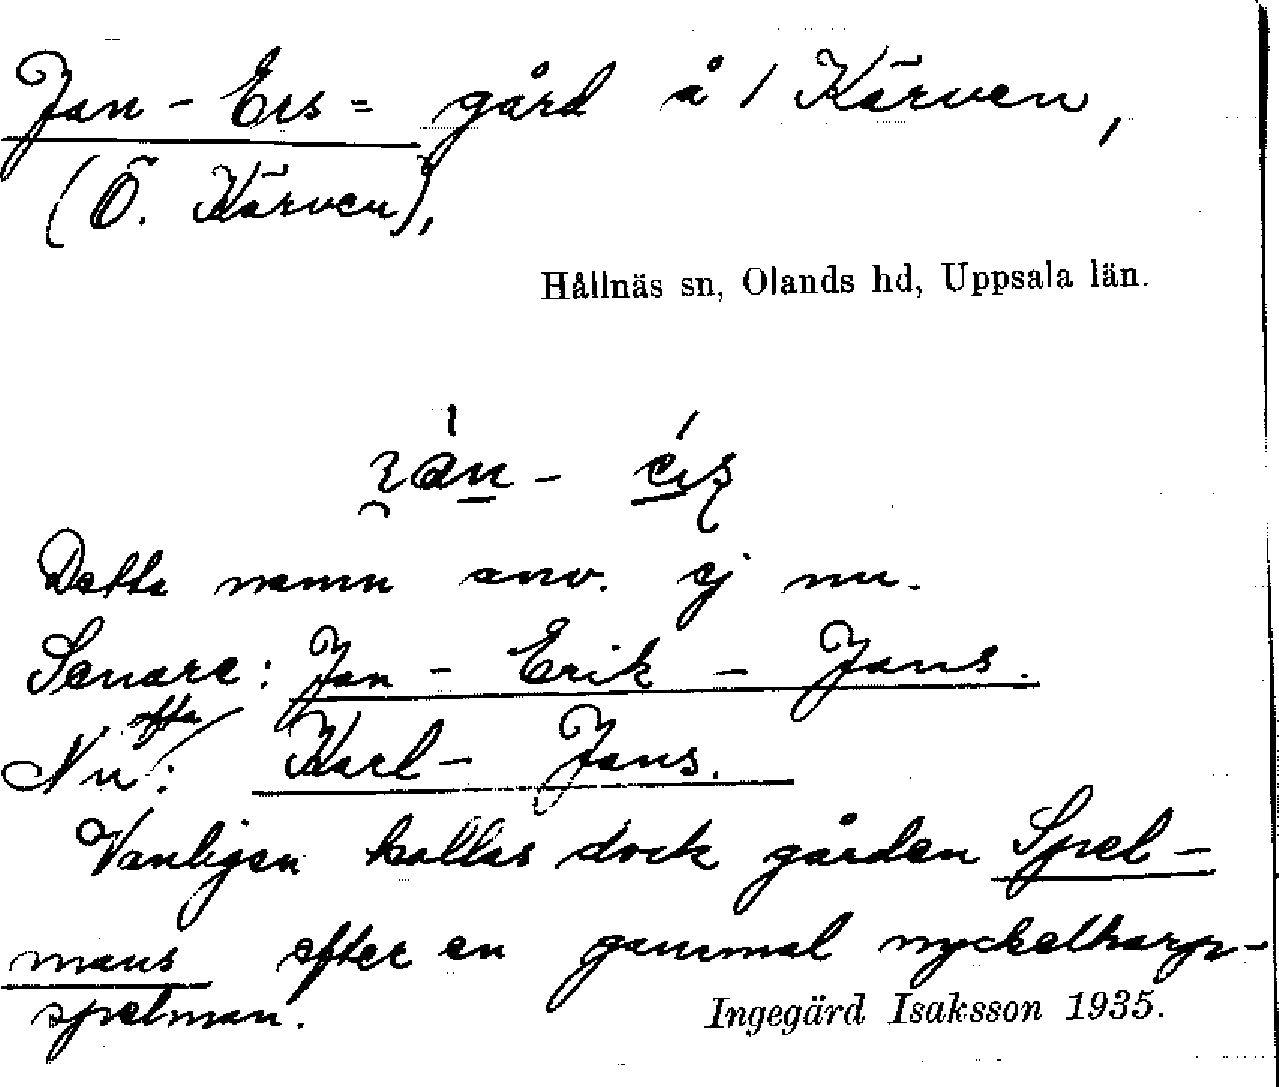 Jan - Ers = gård å / Kärven,
(Ö. Kärven),
Hållnäs sn, Olands hd, Uppsala län.
Detta namn anv. ej nu.
Senare: Jan - Erik - Jans.
Nu ofta: Karl - Jans.
Vanligen kallas dock gården Spel-
mans efter en gammal nyckelharp-
spelman.
Ingegärd Isaksson 1935.